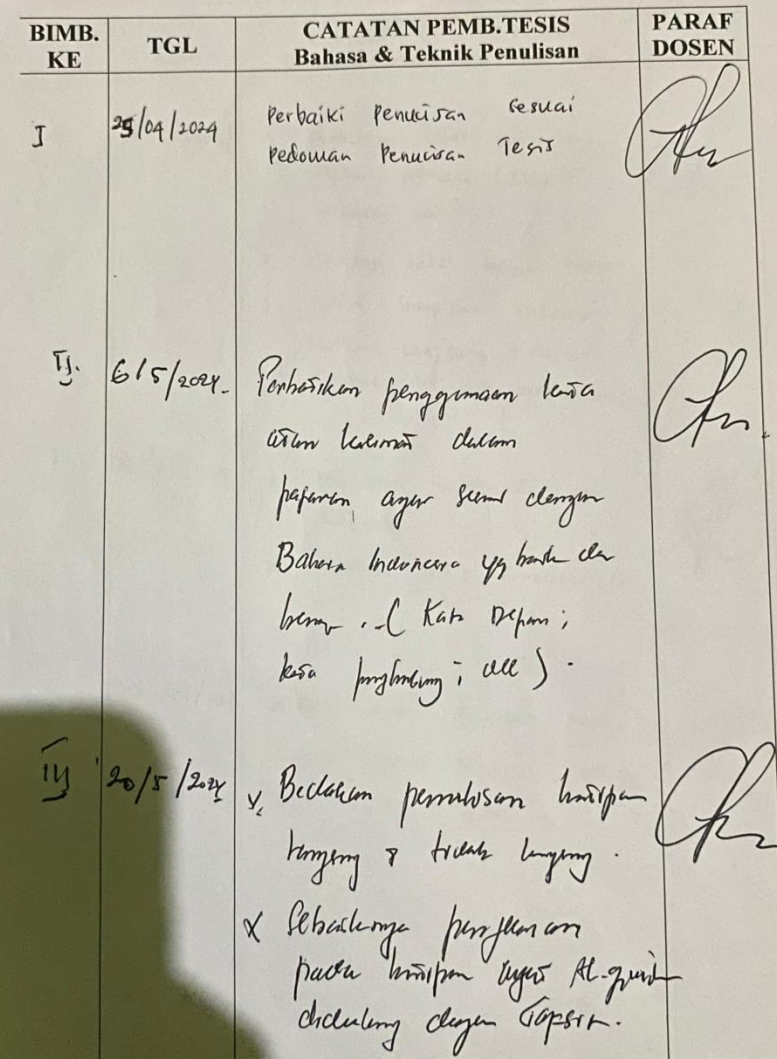 BIMB. KE
TGL
CATATAN PEMB.TESIS
Bahasa & Teknik Penulisan
PARAF DOSEN
I
25/04/2024
Perbaiki Penulisan Sesuai
Pedoman Penulisan Tesis
II.
6/5/2024.
Perbaikan penggunaan kata
atau kalimat dalam
paparan, agar sesuai dengan
Bahasa Indonesia yg baik dan
benar. (Kata Depan;
kata penghubung; dll).
III
20/5/2024
Bedakan penulisan kutipan
langsung & tidak langsung.
Sebaiknya penjelasan
pada kutipan ayat Al-qur'an
didukung dengan Tafsir.